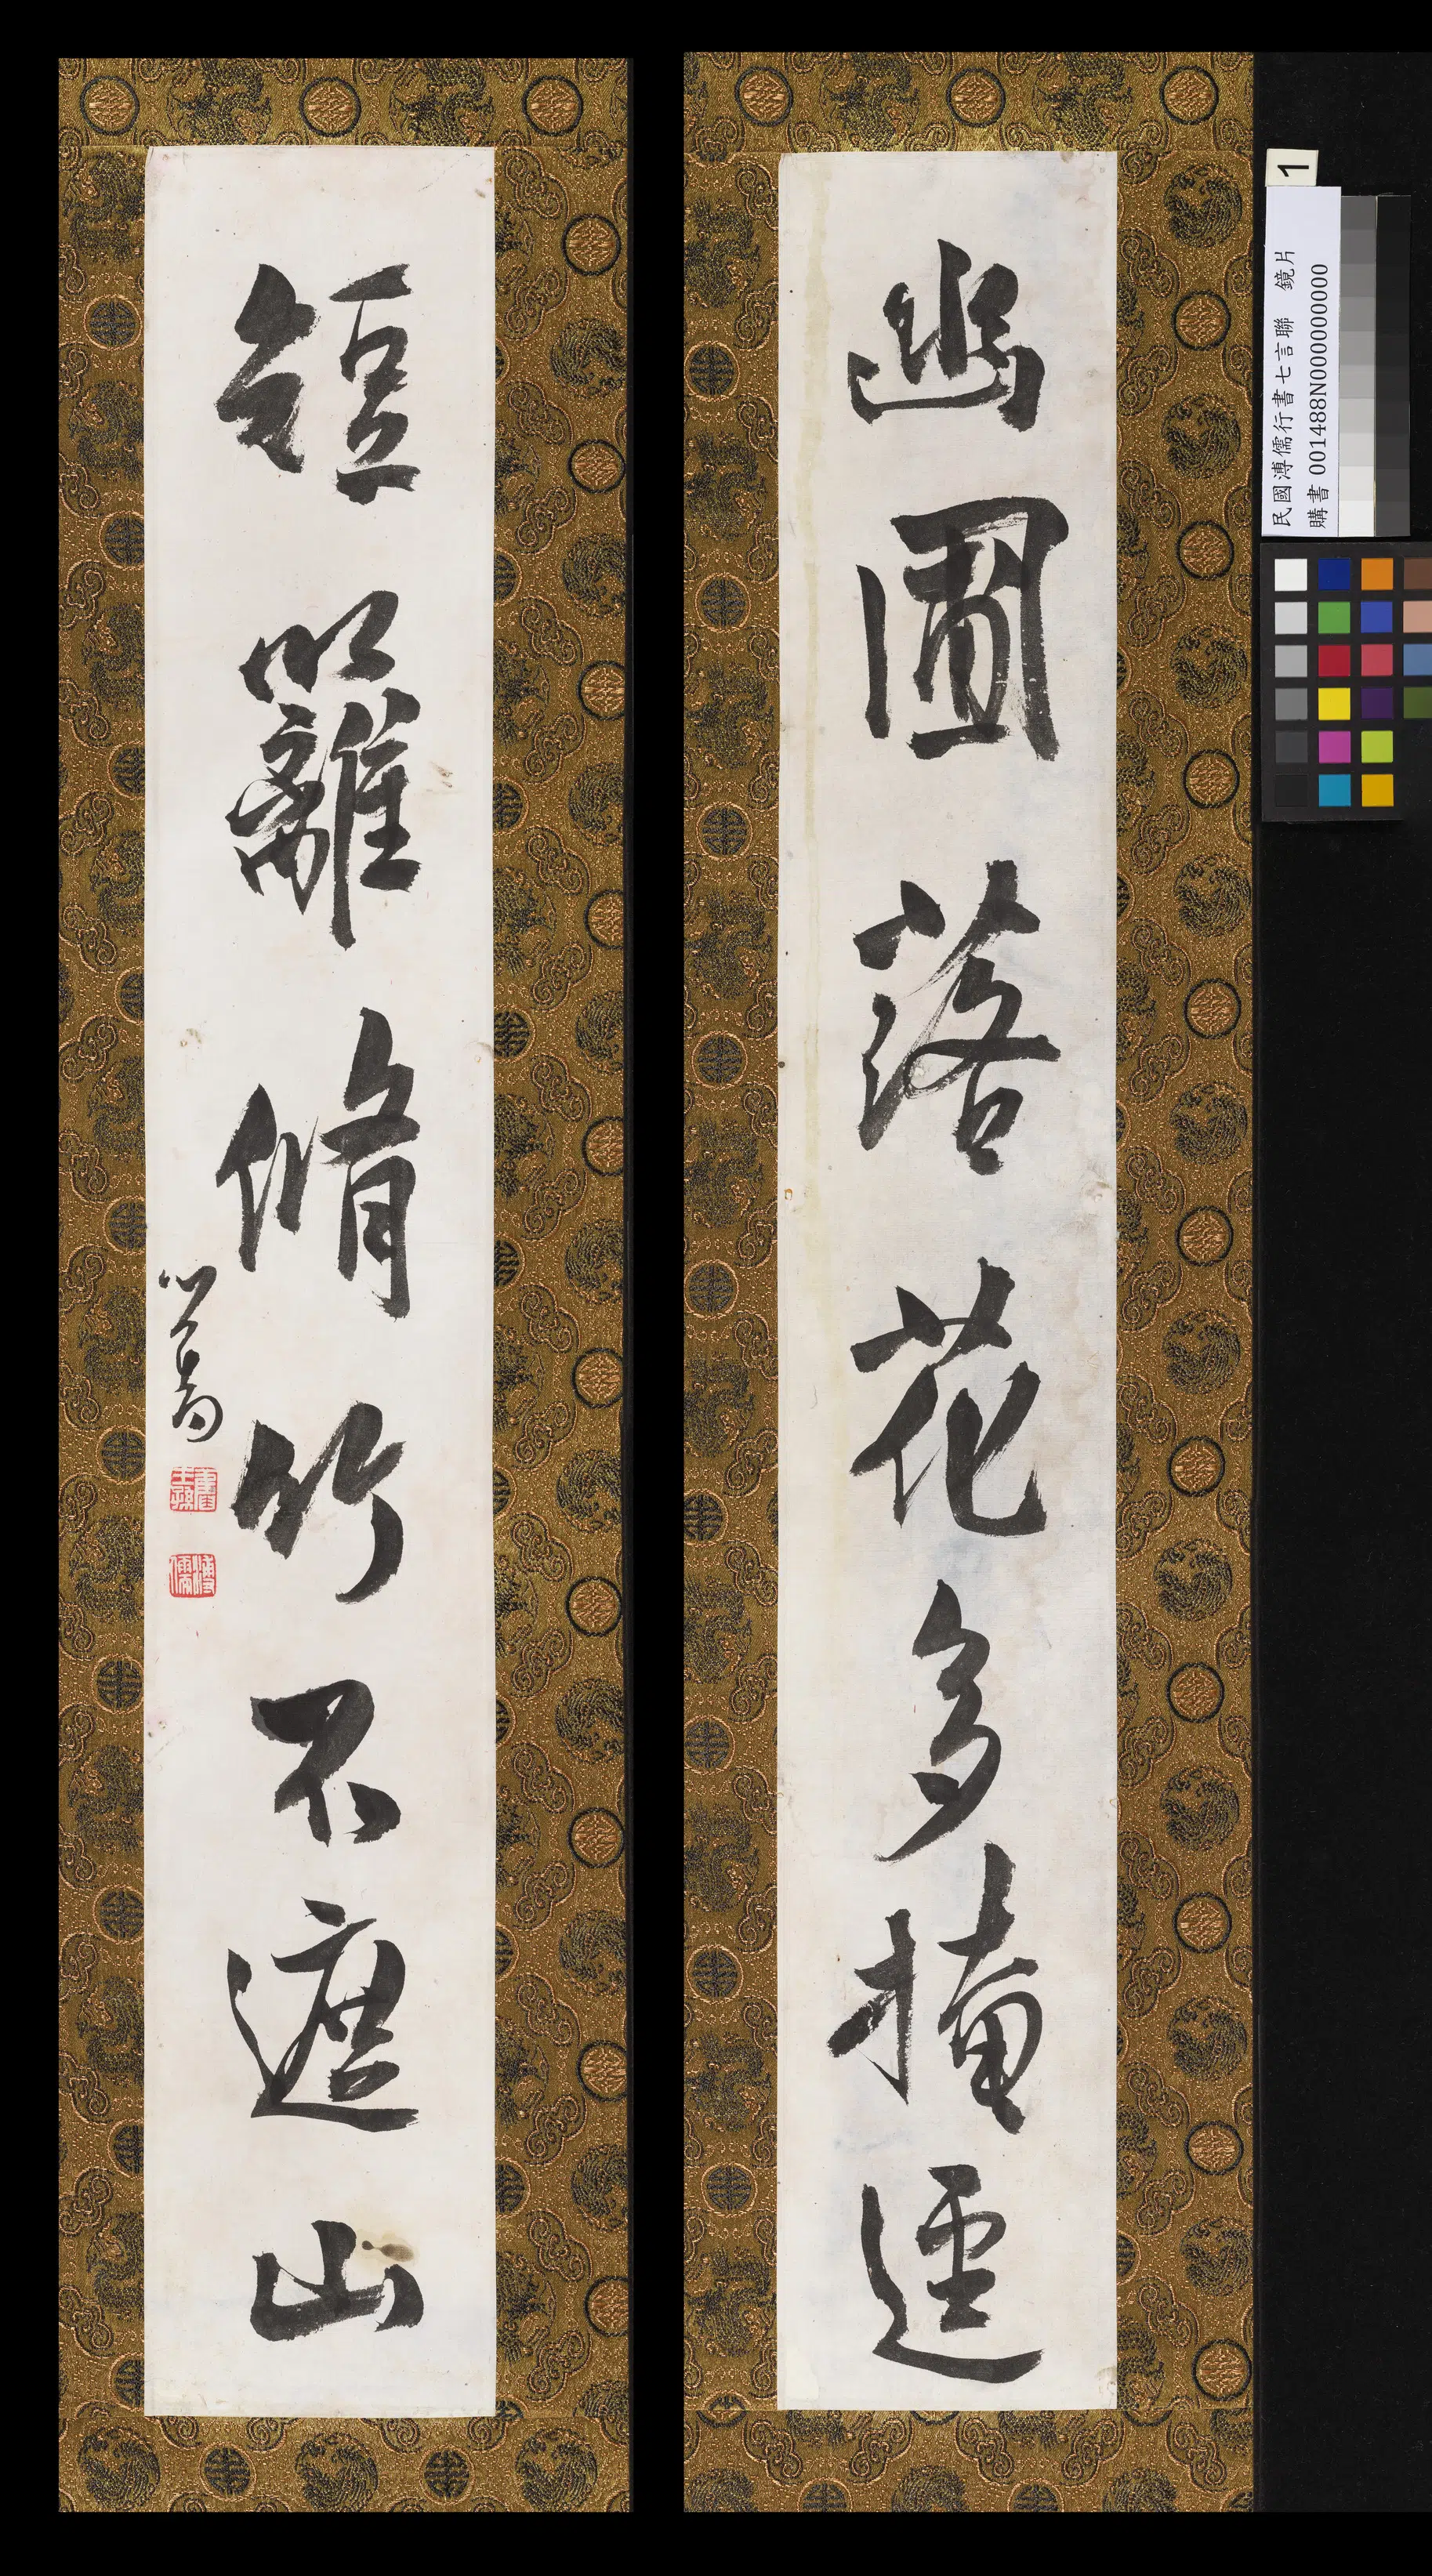 幽圃落花多掩逕
短籬脩竹不遮山
心畬
舊王孫
溥儒
1
民國溥儒行書七言聯 鏡片
購書 001488N000000000